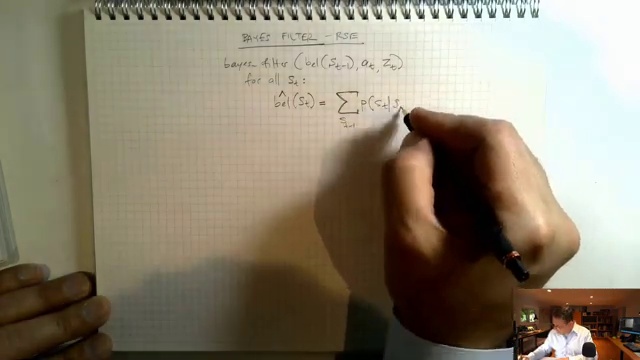 BAYES FILTER - RSE
bayes filter (bel(s_{t-1}), a_t, z_t)
for all s_t:
b̂el(s_t) = Σ_{s_{t-1}} p(s_t | s